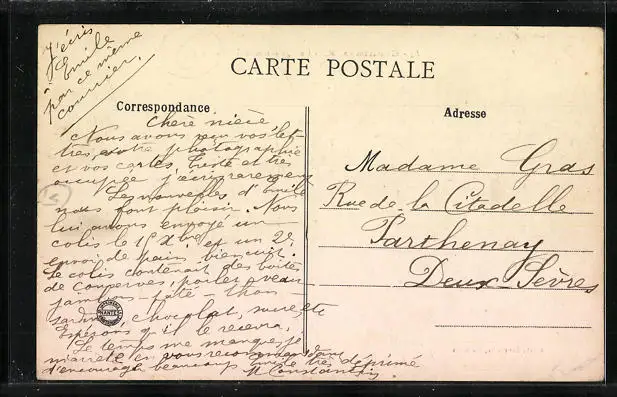 J'écris
à Emile
par ce même
courrier.
CARTE POSTALE
Correspondance
Adresse
Chère nièce
Nous avons reçu vos let-
tres, votre photographie
et vos cartes. Triste et très
occupée j'écris rarement
Les nouvelles d'Emile
nous font plaisir. Nous
lui avons envoyé un
colis le 15 Xbre et un 2e
envoi de pain biscuit.
Le colis contenait des boîtes
de conserves, poulet, veau
jambon - pâté - thon
sardines, chocolat, sucre etc
Espérons qu'il le recevra.
Le temps me manque, je
m'arrête en vous recommandant
d'encourager beaucoup Emile très déprimé
M Constantin
Madame Gras
Rue de la Citadelle
Parthenay
Deux-Sèvres
NANTES